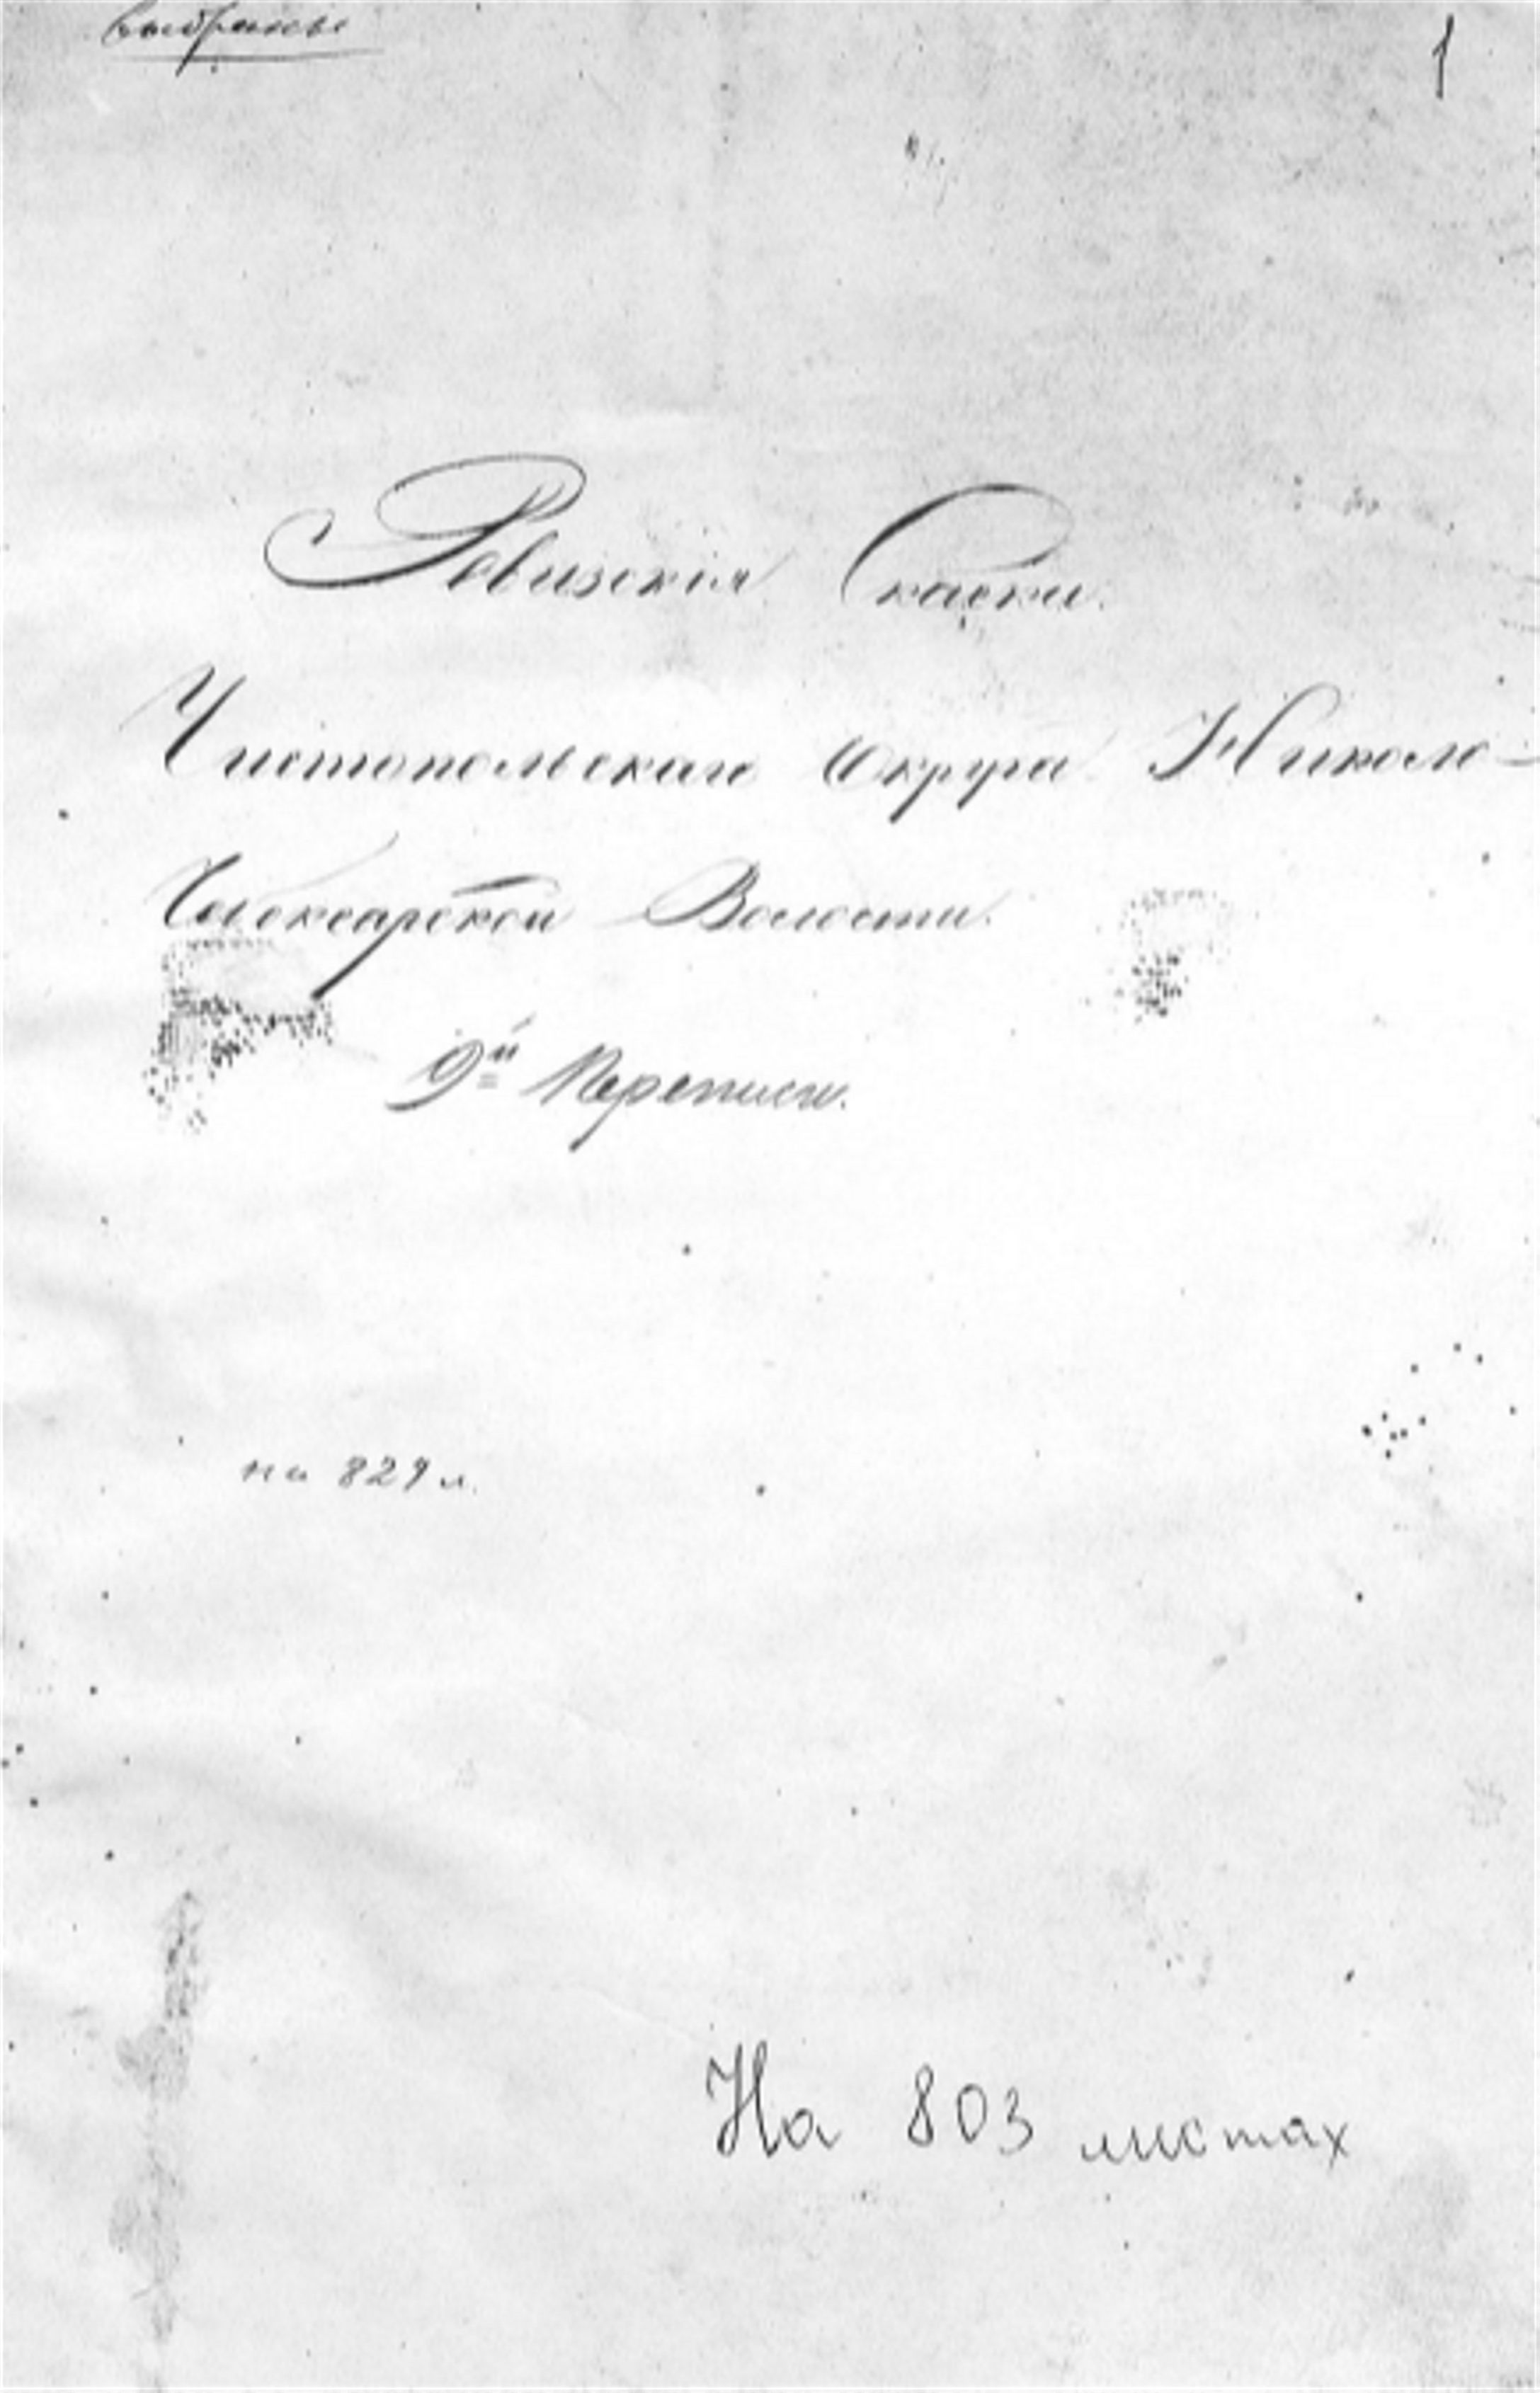 выбраны
1
Ревизскія Скаски.
Чистопольскаго Округа Николо-
Чебоксарской Волости.
9й Переписи.
на 829 л.
На 803 листах